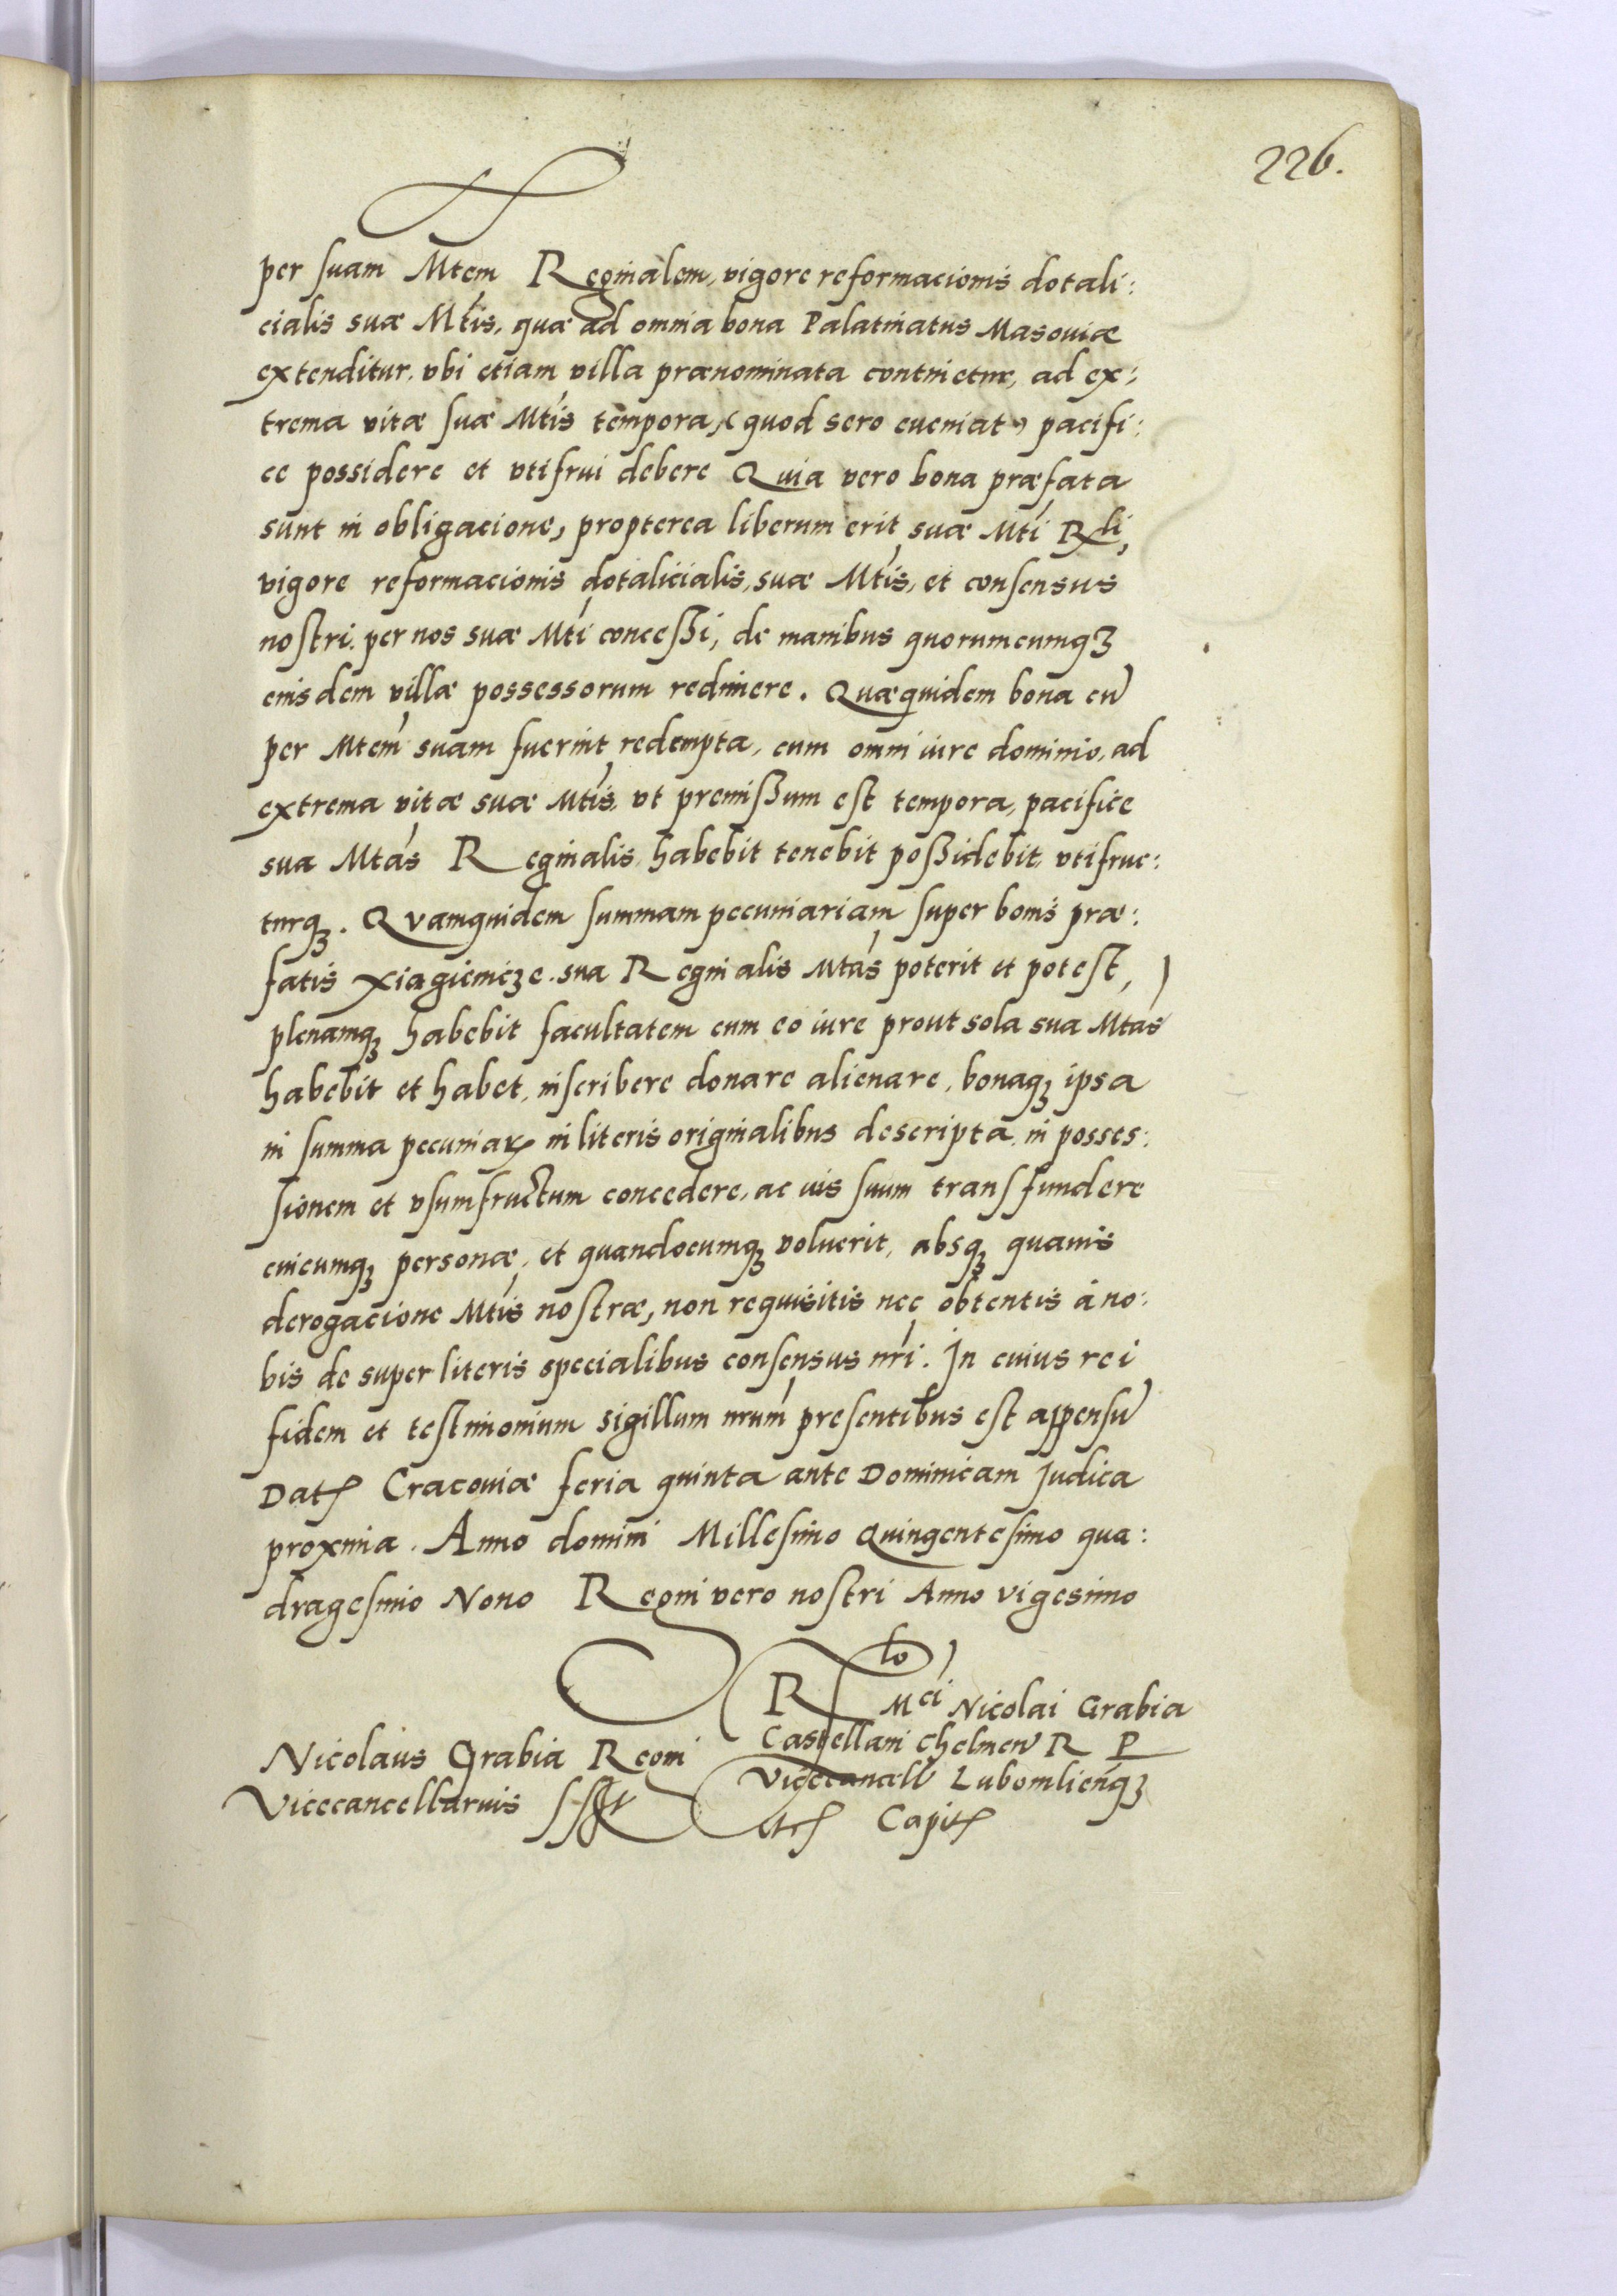 226.
per suam Mtem Reginalem, vigore reformacionis dotali:
cialis suæ Mtis, quæ ad omnia bona Palatinatus Masouiæ
extenditur, vbi etiam villa prænominata continetur, ad ex:
trema vitæ suæ Mtis tempora, (quod sero eueniat) pacifi:
ce possidere et vtifrui debere Quia vero bona præfata
sunt in obligacione, propterea liberum erit suæ Mti Rli,
vigore reformacionis dotalicialis, suæ Mtis, et consensus
nostri, per nos suæ Mti conceßi, de manibus quorumcumqȝ
eiusdem villæ possessorum redimere. Quæquidem bona cũ
per Mtem suam fuerint redempta, cum omni iure dominio, ad
extrema vitæ suæ Mtis, vt premißum est tempora, pacifice
sua Mtas Reginalis habebit tenebit poßidebit, vtifrue:
turqȝ. Quamquidem summam pecuniariam super bonis præ:
fatis Xiągienicze. sua Reginalis Mtas poterit et potest,
plenamqȝ habebit facultatem cum eo iure prout sola sua Mtas
habebit et habet, inscribere donare alienare, bonaqȝ ipsa
in summa pecuniaꝝ in literis originalibus descripta, in posses:
sionem et vsumfructum concedere, ac ius suum transfundere
cuicumqȝ personæ, et quandocumqȝ voluerit, absqȝ quauis
derogacione Mtis nostræ, non requisitis nec obtentis à no:
bis de super literis specialibus consensus nri. In cuius rei
fidem et testimonium sigillum nrum presentibus est appensũ
Datꝭ Cracouiæ feria quinta ante Dominicam Iudica
proxima. Anno domini Millesimo Quingentesimo qua:
dragesimo Nono Regni vero nostri Anno vigesimo
Nicolaus Grabia Regni
Vicecancellarius sst
Rlo Mci Nicolai Grabia
Castellani Chelmeñ R P
Vicecancell Lubomlieñqȝ
etcꝭ Capitꝭ